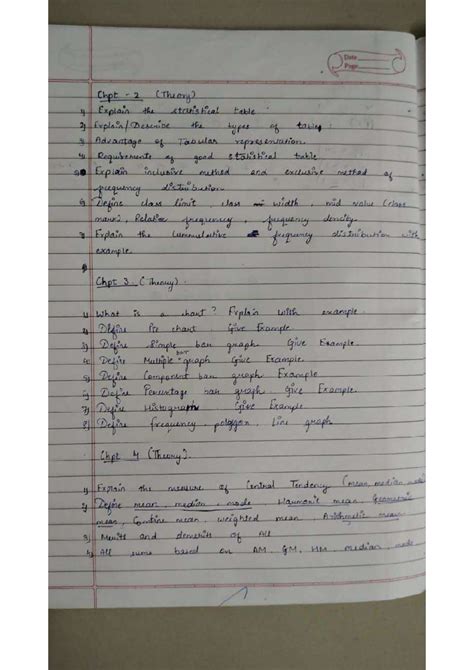 Date
Page
Chpt - 2 (Theory)
1) Explain the statistical table
2) Explain/Describe the types of table
3) Advantage of Tabular representation.
4) Requirements of good statistical table
5) Explain inclusive method and exclusive method of
frequency distribution.
6) Define class limit, class width, mid value (class
mark), Relative frequency, frequency density.
7) Explain the Cummulative frequency distribution with
example.
Chpt 3 (Theory).
1) What is a chart? Explain with example.
2) Define Pie chart. Give Example.
3) Define Simple bar graph Give Example.
4) Define Multiple bar graph Give Example.
5) Define Component bar graph. Give Example
6) Define Percentage bar graph. Give Example.
7) Define Histograph Give Example
8) Define frequency, polygon, Line graph
Chpt 4 (Theory).
1) Explain the measure of Central Tendency (mean, median, mode
2) Define mean, median, mode, Harmonic mean, Geometric
mean, Combine mean, weighted mean, Arithmetic mean
3) Merits and demerits of All
4) All sums based on AM, GM, HM, median, mode